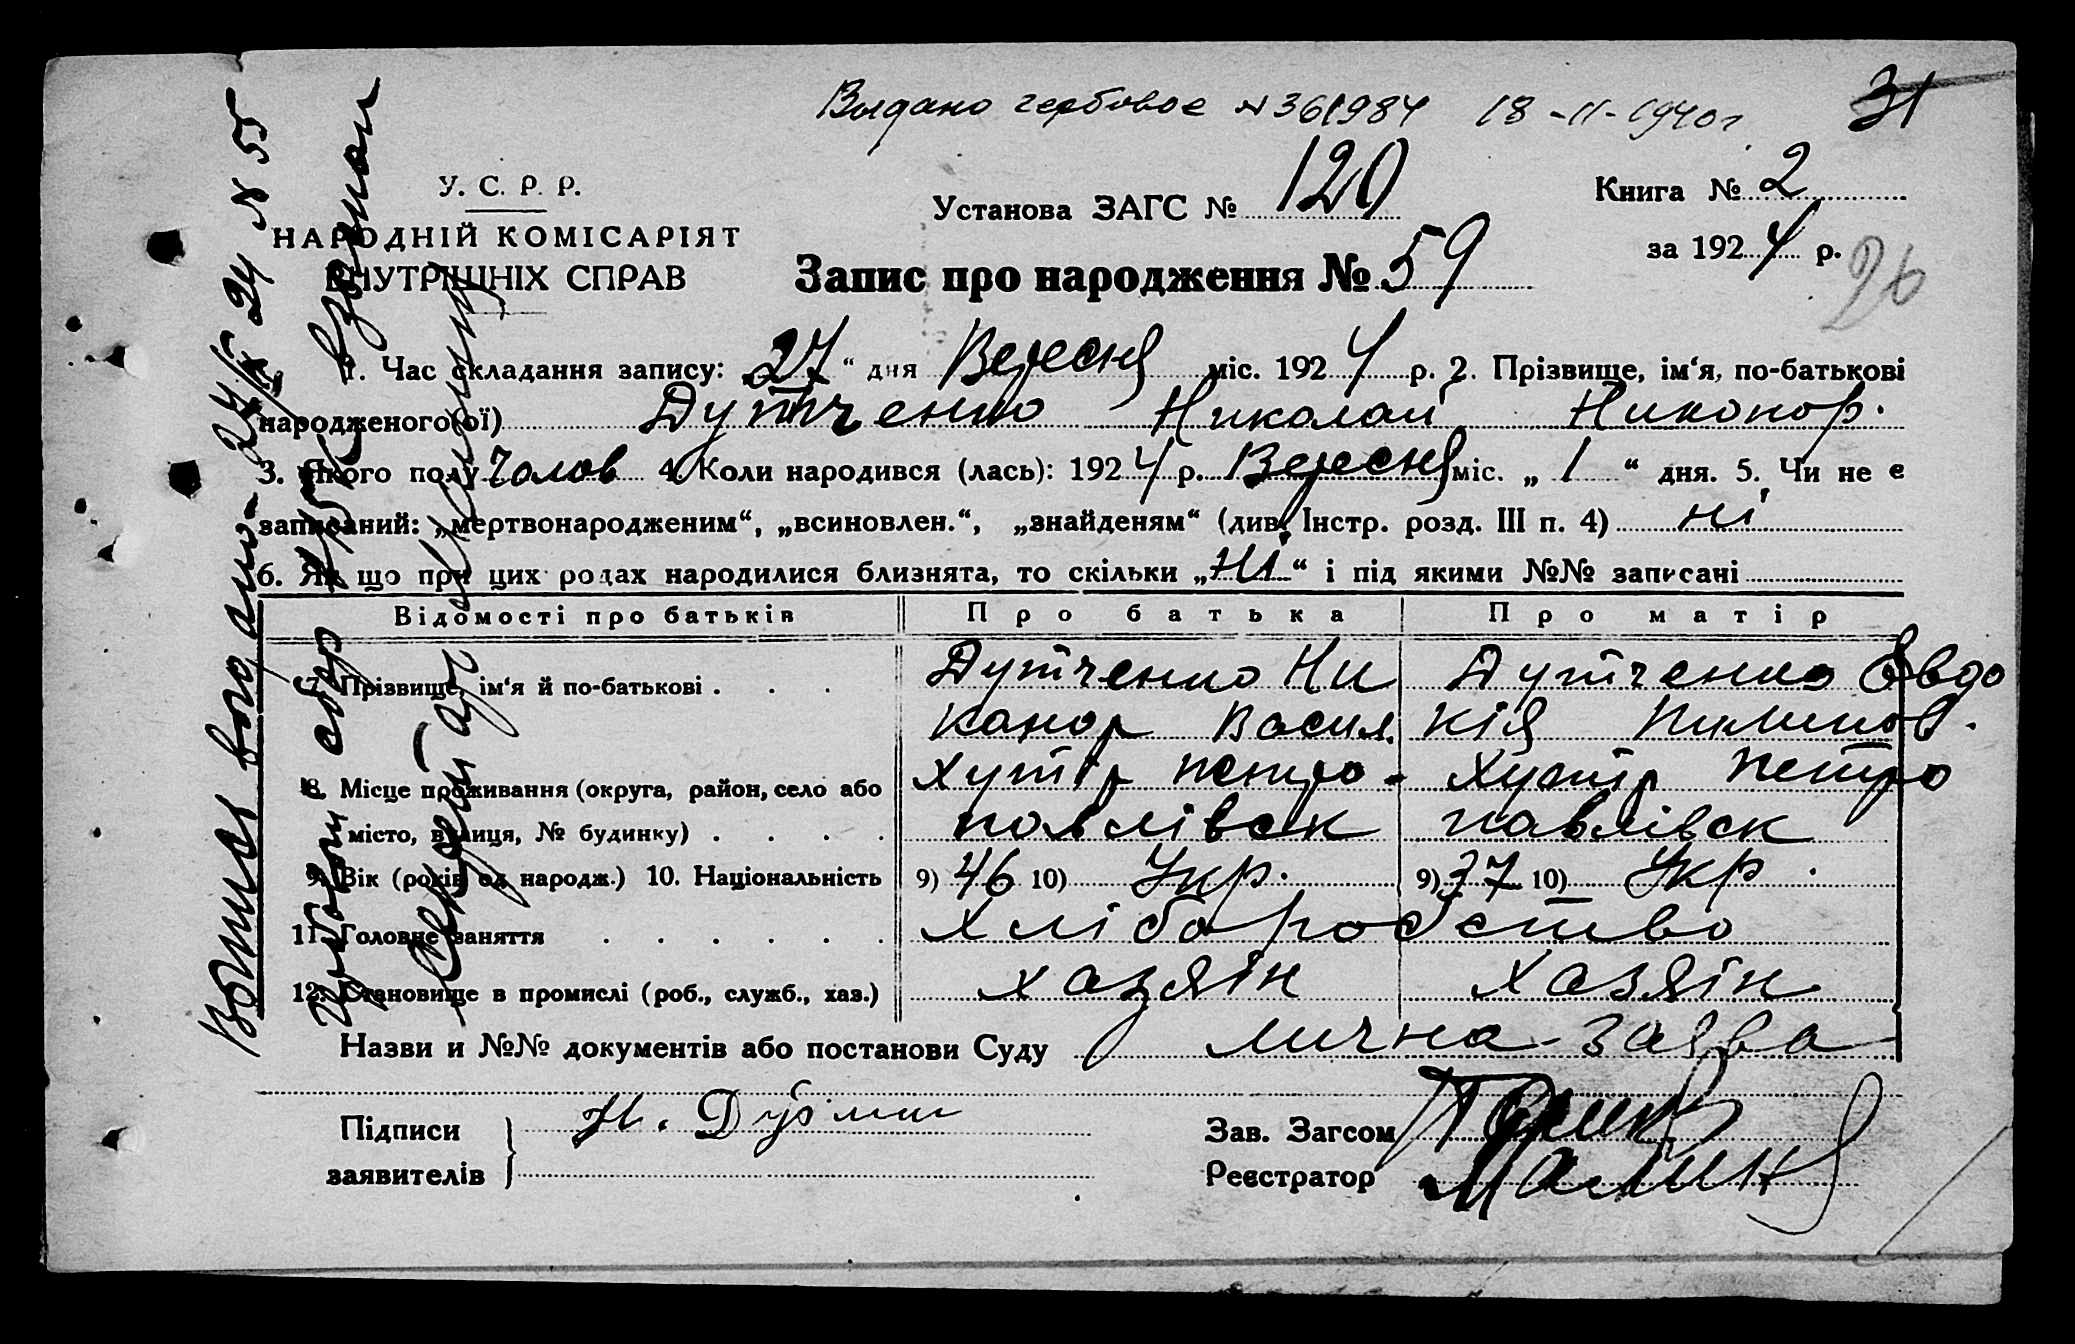 Выдано гербовое № 361984 18-11-1940 г.
31
У. С. Р. Р.
НАРОДНІЙ КОМІСАРІЯТ
ВНУТРІШНІХ СПРАВ
Установа ЗАГС № 120
Книга № 2
за 1924 р.
26
Запис про народження № 59
1. Час складання запису: 27 “ дня Вересня міс. 1924 р. 2. Прізвище, ім‘я, по-батькові
народженого(ої) Дутченко Николай Никонор.
3. Якого полу чолов 4. Коли народився (лась): 1924 р. Вересня міс. „ 1 “ дня. 5. Чи не є
записаний: „мертвонародженим“, „всиновлен.“, „знайденям“ (див. Інстр. розд. III п. 4) ні
6. Як що при цих родах народилися близнята, то скільки „ні“ і під якими №№ записані
Відомості про батьків Про батька Про матір
7. Прізвище, ім‘я й по-батькові . . . Дутченко Ни Дутченко Євдо
канор Васил. кія Пилипов.
8. Місце проживання (округа, район, село або Хутір Петро- Хутір Петро
місто, вулиця, № будинку) . . . . павлівск павлівск
9. Вік (років од народж.) 10. Національність 9) 46 10) Укр. 9) 37 10) Укр.
11. Головне заняття . . . . . . Хліборобство
12. Становище в промислі (роб., служб., хаз.) хазяін хазяін
Назви и №№ документів або постанови Суду лична заява
Підписи
заявителів
Н.
Зав. Загсом
Реєстратор
№ 55